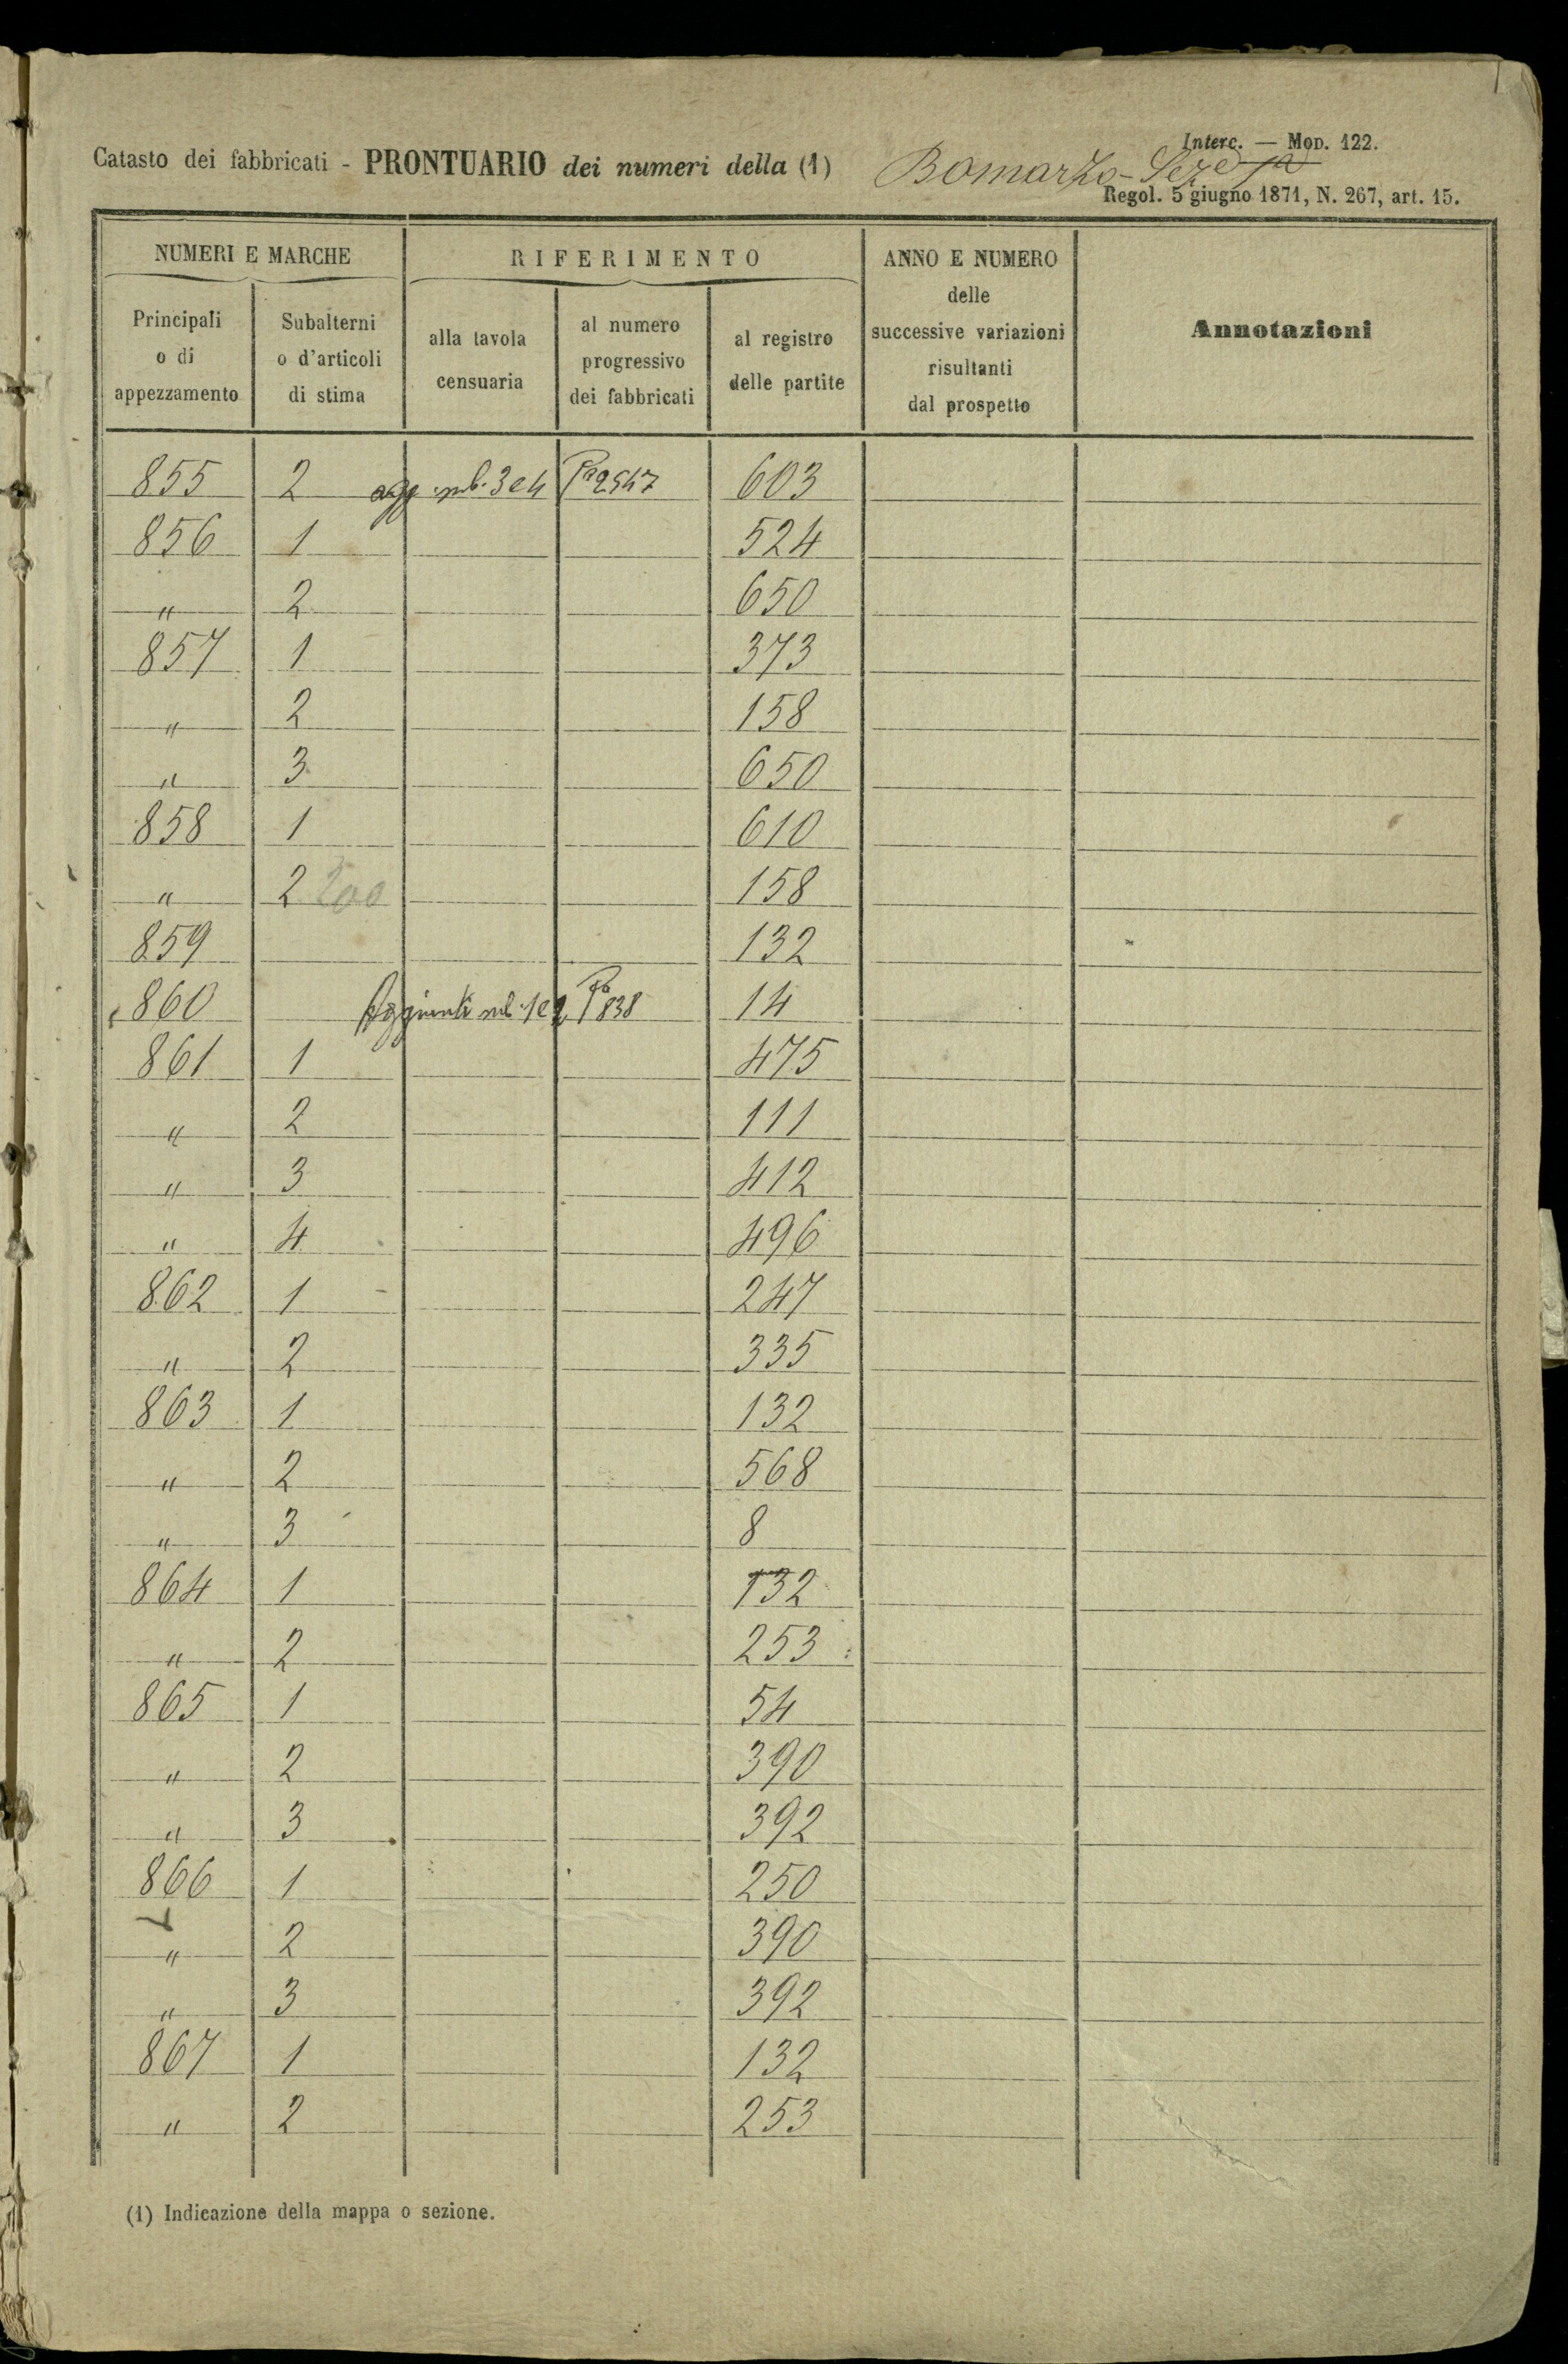 Interc. — Mod. 122.
Catasto dei fabbricati - PRONTUARIO dei numeri della (1) Bomarzo - Seze 1a
Regol. 5 giugno 1871, N. 267, art. 15.
NUMERI E MARCHE
RIFERIMENTO
ANNO E NUMERO
delle
successive variazioni
risultanti
dal prospetto
Annotazioni
Principali
o di
appezzamento
Subalterni
o d'articoli
di stima
alla tavola
censuaria
al numero
progressivo
dei fabbricati
al registro
delle partite
855 2 agg. sub. 3 e 4 Pa 2547 603
856 1 524
" 2 650
857 1 373
" 2 158
" 3 650
858 1 610
" 2 200 158
859 132
860 Aggiunti sub. 1 e 2 Pa 838 14
861 1 475
" 2 111
" 3 412
" 4 496
862 1 247
" 2 335
863 1 132
" 2 568
" 3 8
864 1 132
" 2 253
865 1 54
" 2 390
" 3 392
866 1 250
" 2 390
" 3 392
867 1 132
" 2 253
(1) Indicazione della mappa o sezione.